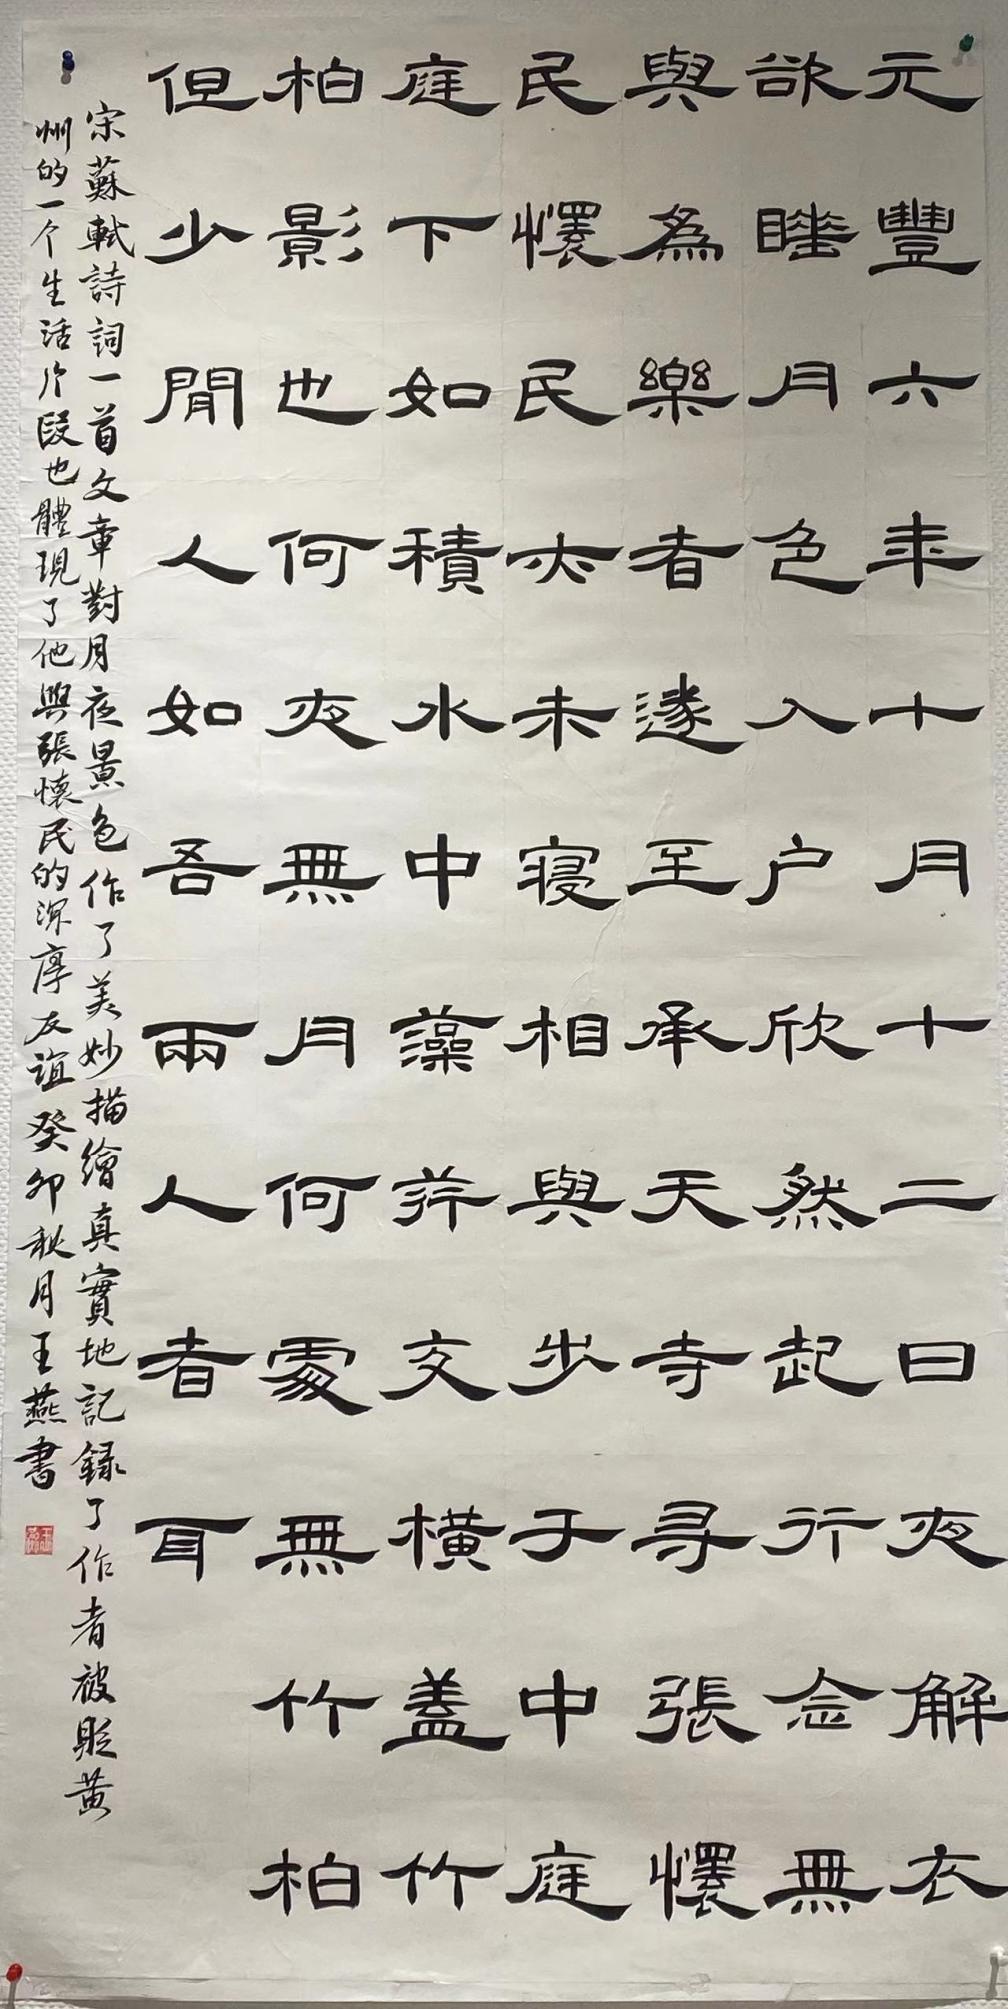 元豐六年十月十二日夜解衣
欲睡月色入户欣然起行念無
與為樂者遂至承天寺寻張懷
民懷民亦未寝相與步于中庭
庭下如積水中藻荇交横蓋竹
柏影也何夜無月何處無竹柏
但少閒人如吾兩人者耳
宋蘇軾詩詞一首文章對月夜景色作了美妙描繪真實地記録了作者被貶黄
州的一个生活片段也體現了他與張懷民的深厚友誼癸卯秋月王燕書